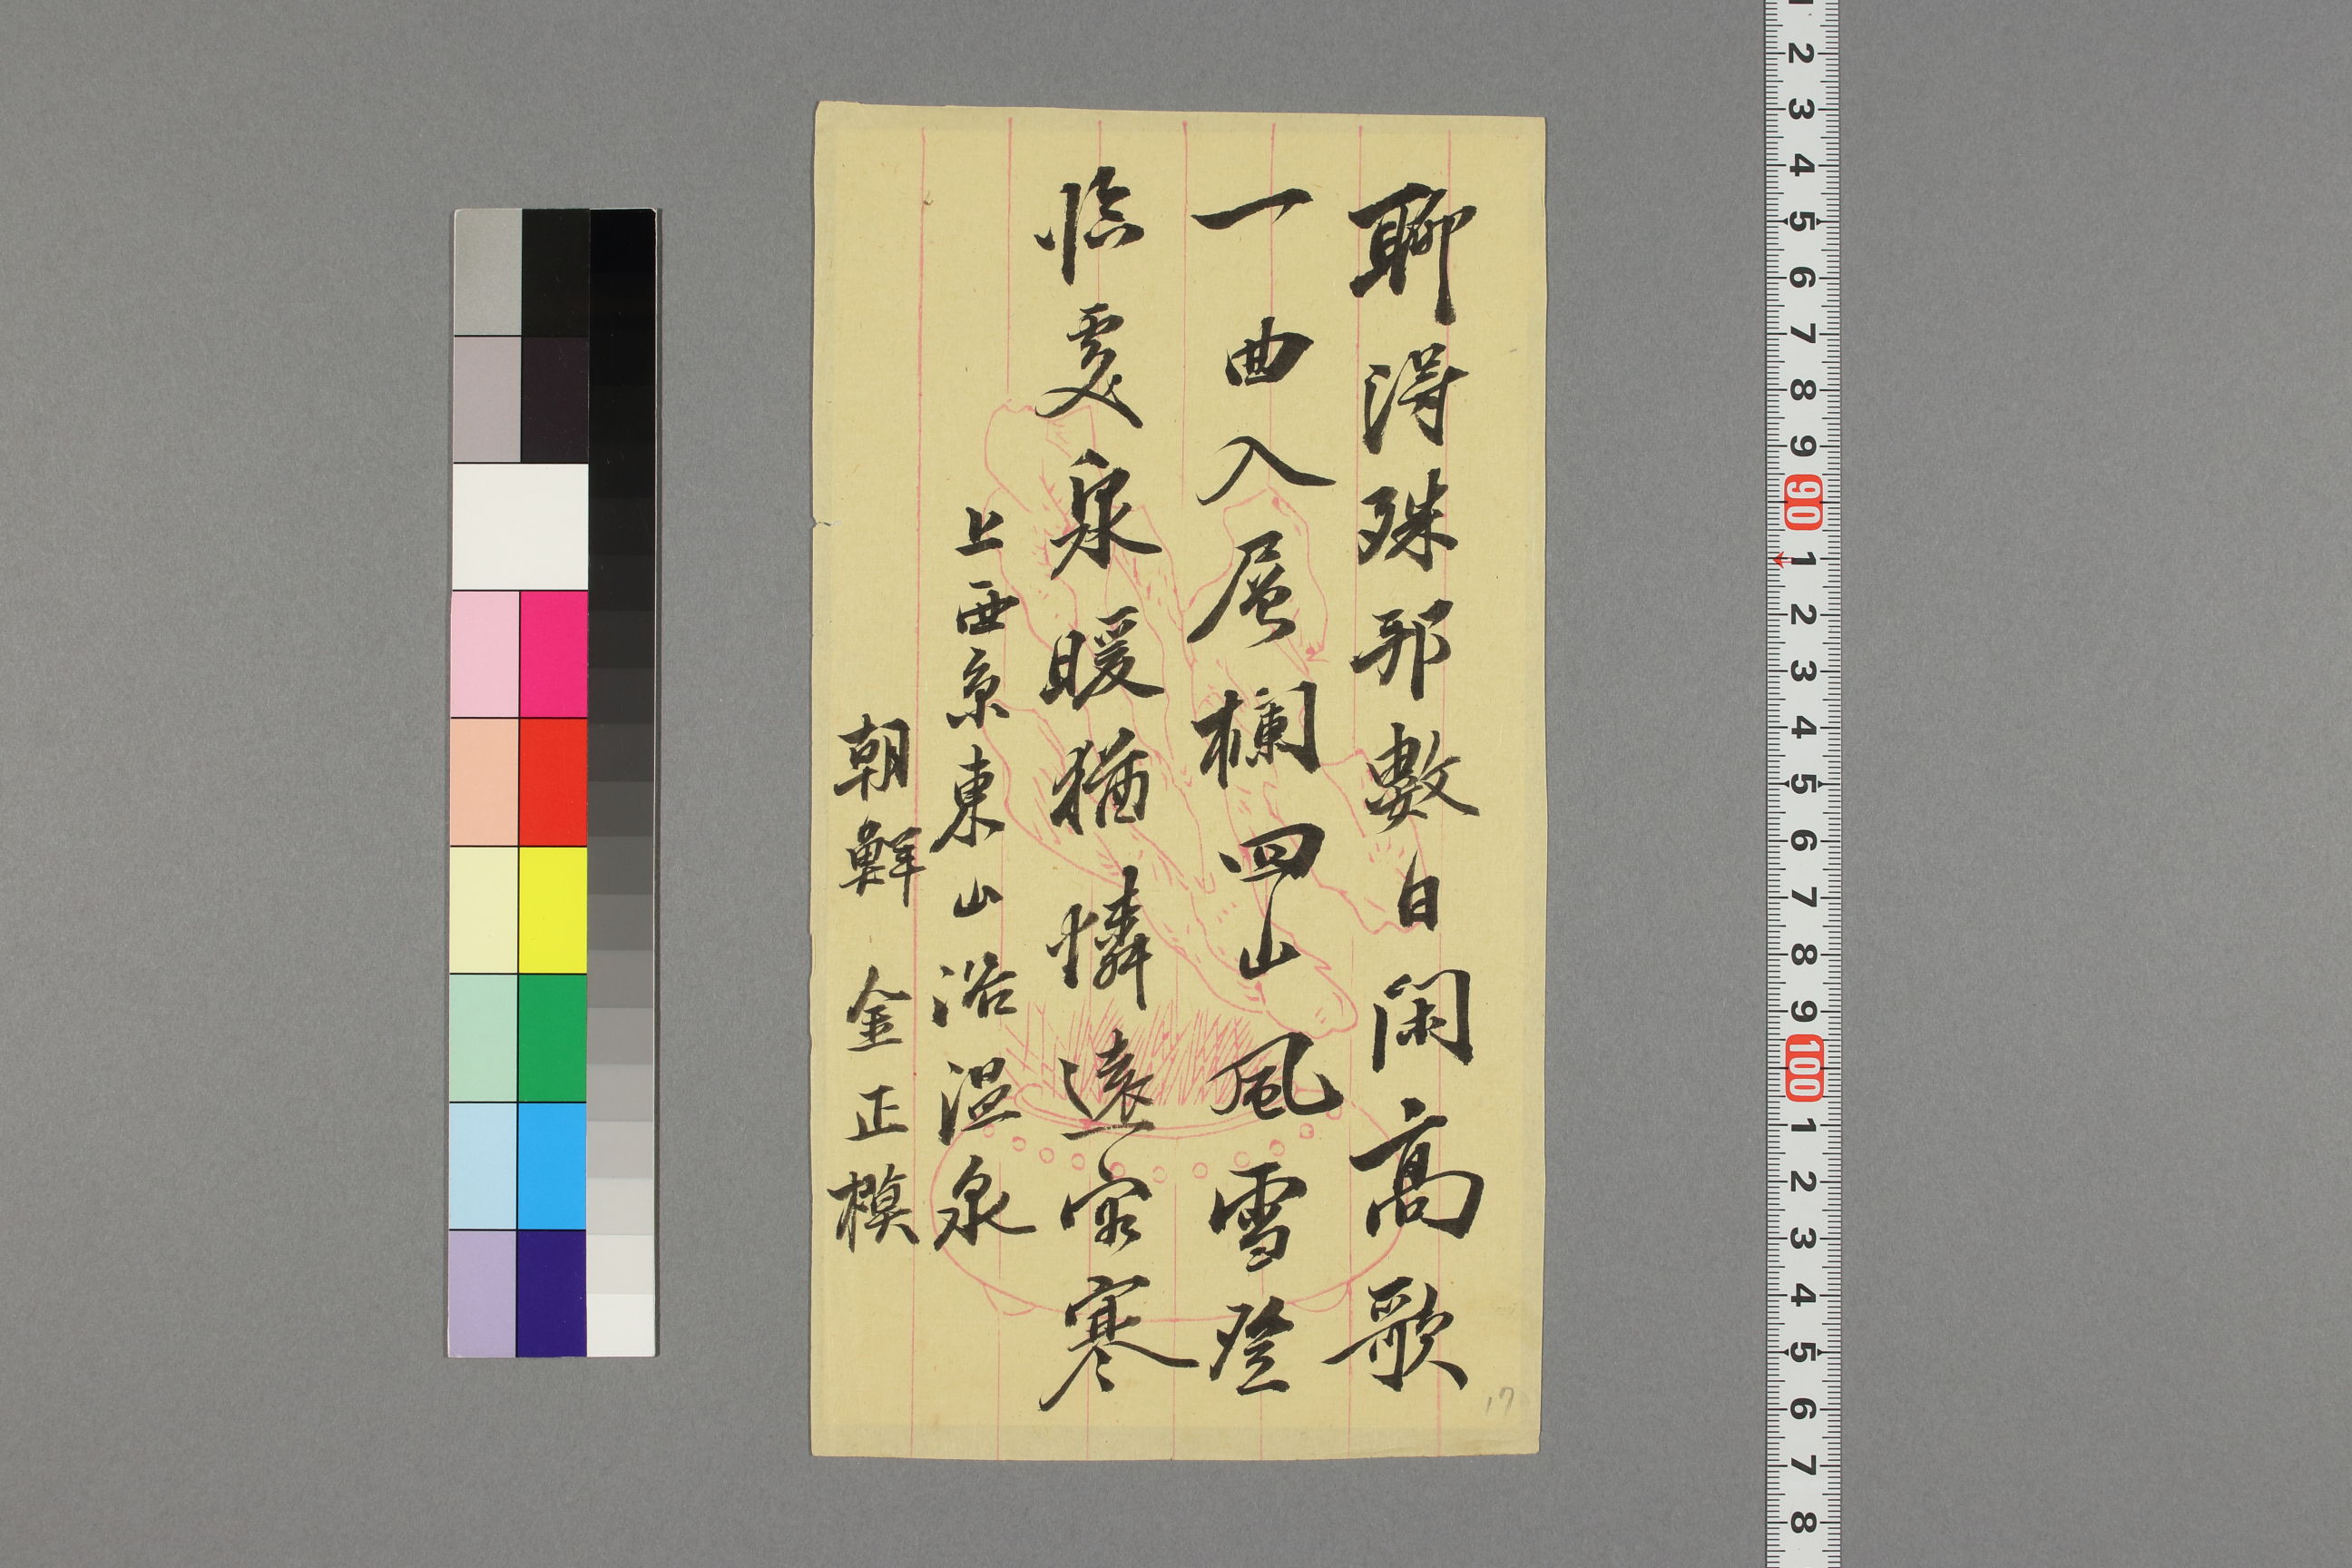 聊得殊邦數日閑高歌
一曲入層欄四山風雪登
臨處泉暖猶憐遠客寒
上西京東山浴温泉
朝鮮 金正模
17
2 3 4 5 6 7 8 9 90 1 2 3 4 5 6 7 8 9 100 1 2 3 4 5 6 7 8